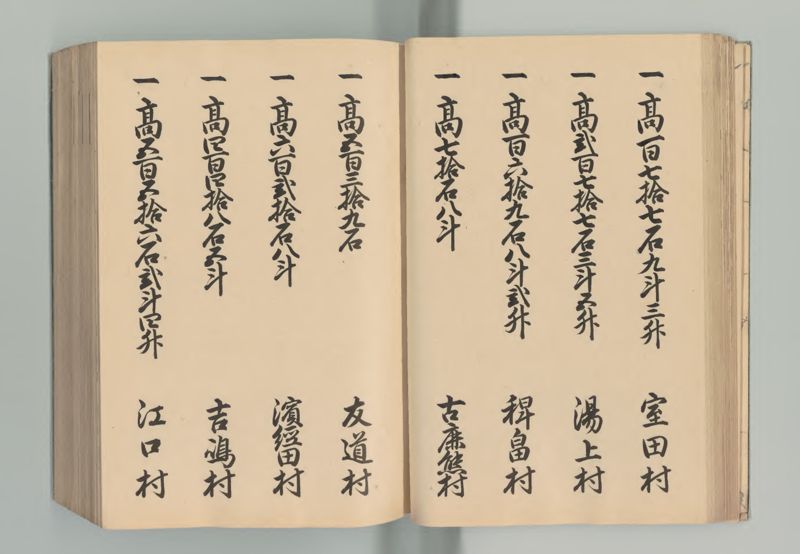 一高百七拾七石九斗三升 室田村
一高弐百七拾七石三斗五升 湯上村
一高百六拾九石八斗弐升 稗畠村
一高七拾石八斗 古鹿熊村
一高五百三拾九石 友道村
一高六百弐拾石八斗 濱経田村
一高四百四拾八石五斗 吉嶋村
一高五百五拾六石弐斗四升 江口村